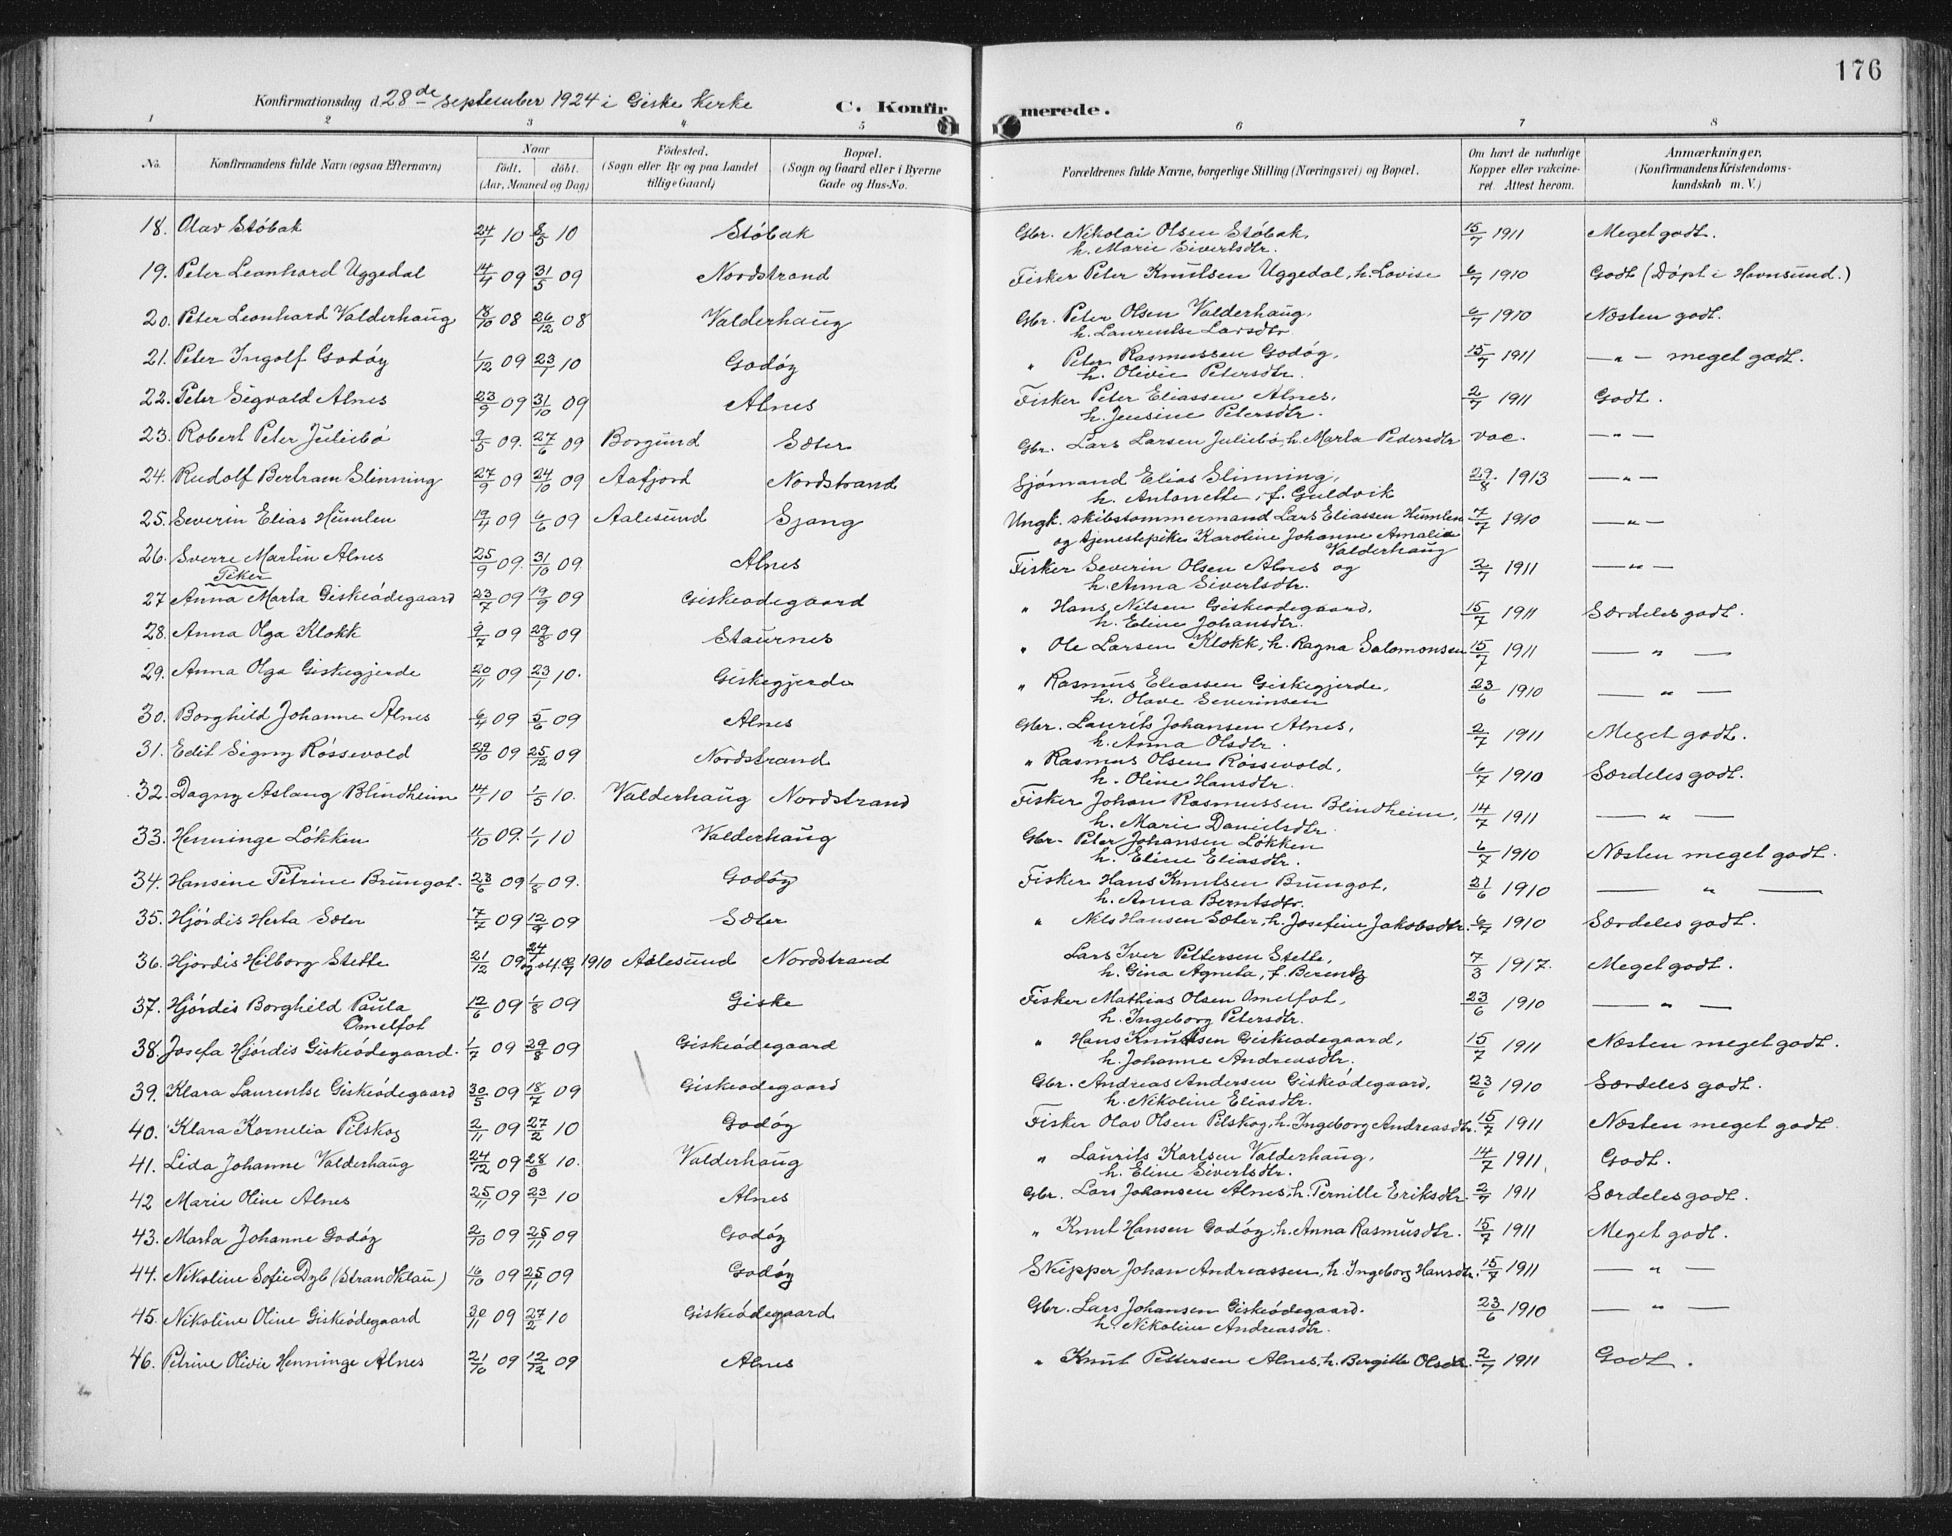 176
Konfirmationsdag d. 28de september 1924 i Giske Kirke C. Konfirmerede.
1 2 3 4 5 6 7 8
No. Konfirmandens fulde Navn (ogsaa Efternavn) Naar födt. döbt. (Aar, Maaned og Dag) Födested. (Sogn eller By og paa Landet tillige Gaard) Bopæl. (Sogn og Gaard eller i Byerne Gade og Hus-No. Forældrenes fulde Navne, borgerlige Stilling (Næringsvei) og Bopæl. Om havt de naturlige Kopper eller vakcineret. Attest herom. Anmærkninger. (Konfirmandens Kristendomskundskab m. V.)
18. Olav Stóbak 24/1 10 8/5 10 Stóbak Gbr. Nikolai Olsen Stóbak, h. Marie Sivertsdtr. 15/7 1911 Meget godt.
19. Peter Leonhard Uggedal 14/4 09 31/5 09 Nordstrand Fisker Peter Knutsen Uggedal, h. Lovise 6/7 1910 Godt (Döpt i Havnsund.)
20. Peter Leonhard Valderhaug 18/10 08 26/12 08 Valderhaug Gbr. Peter Olsen Valderhaug, h. Laurentse Larsdtr 6/7 1910 Næsten godt.
21. Peter Ingolf Godóy 1/12 09 23/1 10 Godóy " Peter Rasmussen Godóy, h. Olivie Petersdtr. 15/7 1911 — " — meget godt.
22. Peter Sigvald Alnes 23/9 09 31/10 09 Alnes Fisker Peter Eliassen Alnes, h. Jensine Petersdtr. 2/7 1911 Godt.
23. Robert Peter Juliebó 9/5 09. 27/6 09 Borgund Sæter Gbr. Lars Larsen Juliebó, h. Marta Pedersdtr vac. — " —
24. Rudolf Bertram Slinning 27/9 09 24/10 09 Aafjord Nordstrand Sjómand Elias Slinning, h. Antonette, f. Guldvik 29/8 1913 — " —
25. Severin Elias Humlen 19/4 09 6/6 09 Aalesund Gjøng Ungk. skibstømmermand Lars Eliassen Humlen og tjenestepike Karoline Johanne Amalia Valderhaug 7/7 1910 — " —
26. Sverre Martin Alnes 25/9 09. 31/10 09 Alnes Fisker Severin Olsen Alnes og h. Anna Sivertsdtr. 2/7 1911 — " —
Piker
27 Anna Marta Giskeódegaard 23/7 09 19/9 09 Giskeodegaard " Hans Nilsen Giskeodegaard, h. Eline Johansdtr. 15/7 1911 Særdeles godt.
28. Anna Olga Klokk 9/7 09 29/8 09 Staurnes " Ole Larsen Klokk, h. Ragna Salomonsen 15/7 1911 — " —
29. Anna Olga Giskegjerde 20/11 09 23/1 10. Giskegjerde " Rasmus Eliassen Giskegjerde, h. Olave Severinsen 23/6 1910 — " —
30. Borghild Johanne Alnes 6/4 09 5/6 09 Alnes Gbr. Laurits Johansen Alnes, h. Anna Olsdtr. 2/7 1911 Meget godt.
31. Edit Signy Róssevold 29/10 09 25/12 09 Nordstrand " Rasmus Olsen Róssevold, h. Oline Hansdtr. 6/7 1910 Særdeles godt.
32. Dagny Aslaug Blindheim 14/1 10 1/5 10. Valderhaug Nordstrand Fisker Johan Rasmussen Blindheim, h. Marie Danielsdtr. 14/7 1911 — " —
33. Henninge Lókken 4/10 09. 1/1 10 Valderhaug Gbr. Peter Johansen Lókken h. Eline Eliasdtr. 6/7 1910 Næsten meget godt.
34. Hansine Petrine Brungot. 23/6 09 1/8 09. Godóy Fisker Hans Knutsen Brungot, h. Anna Berntsdtr. 21/6 1910 — " —
35. Hjórdis Herta Sæter 7/7 09 12/9 09 Sæter " Nils Hansen Sæter, h. Josefine Jakobsdtr. 6/7 1910 Særdeles godt.
36. Hjórdis Hilborg Stette 21/12 09 1910 Aalesund Nordstrand Lars Iver Pettersen Stette, h. Gina Agneta, f. Berentz 7/3 1917. Meget godt.
37. Hjórdis Borghild Paula Omelfot 12/6 09 1/8 09 Giske Fisker Mathias Olsen Omelfot, h. Ingeborg Petersdtr. 23/6 1910 — " —
38. Josefa Hjórdis Giskeódegaard. 1/7 09 29/8 09 Giskeódegaard " Hans Knutsen Giskeodegaard, h. Johanne Andreasdtr. 15/7 1911 Næsten meget godt.
39. Klara Laurentse Giskeódegaard 30/5 09 18/7 09 Giskeodegaard Gbr. Andreas Andersen Giskeódegaard, h. Nikoline Eliasdtr. 23/6 1910 Særdeles godt.
40. Klara Kornelia Pilskog 2/11 09 27/2 10 Godóy Fisker Olav Olsen Pilskog, h. Ingeborg Andreasdtr. 15/7 1911 Næsten meget godt.
41. Lida Johanne Valderhaug 24/12 09 28/3 10. Valderhaug " Laurits Karlsen Valderhaug, h. Eline Sivertsdtr. 14/7 1911. Godt.
42 Marie Oline Alnes 25/11 09 23/1 10 Alnes Gbr. Lars Johansen Alnes, h. Pernille Eriksdtr. 2/7 1911 Særdeles godt.
43. Marta Johanne Godóy 2/10 09 25/11 09 Godóy " Knut Hansen Godóy, h. Anna Rasmusdtr. 15/7 1911 Meget godt.
44. Nikoline Sofie Dyb (Strandklau) 16/10 09 25/11 09 Godóy Skipper Johan Andreassen, h. Ingeborg Hansdtr. 15/7 1911 — " —
45. Nikoline Oline Giskeódegaard 30/11 09 27/2 10 Giskeódegaard Gbr. Lars Johansen Giskeódegaard. h. Nikoline Andreasdtr. 23/6 1910 — " —
46. Petrine Olivie Henninge Alnes 21/10 09 12/12 09 Alnes " Knut Pettersen Alnes, h. Bergitte Olsdtr. 2/7 1911 Godt.